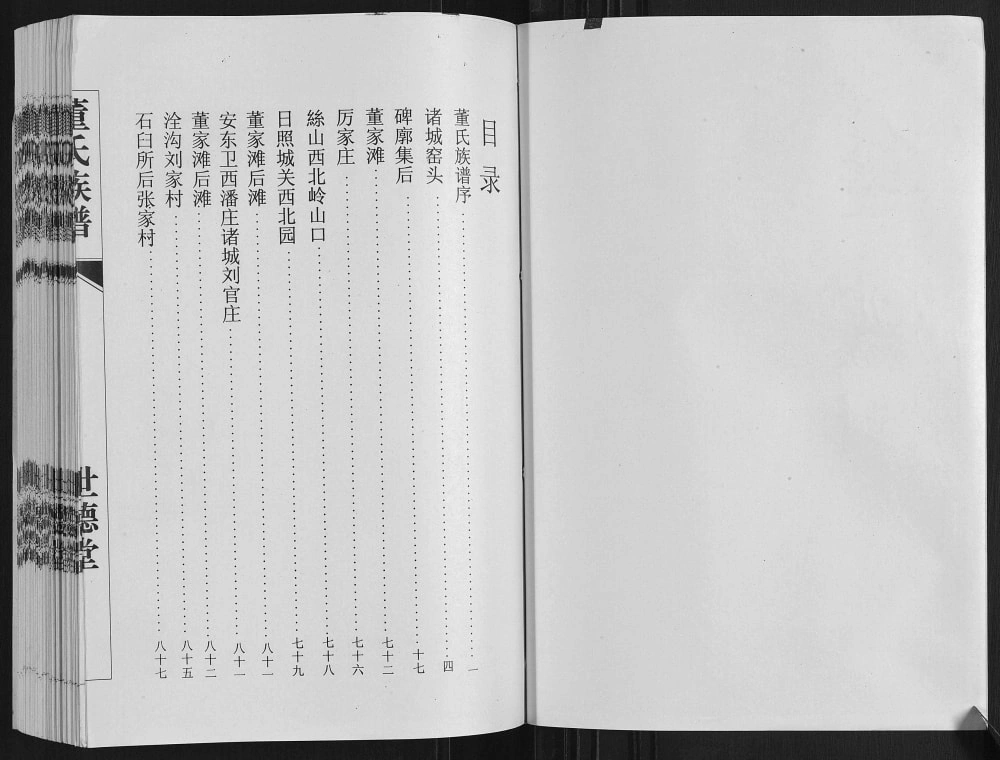 目录
董氏族谱序 一
诸城窑头 四
碑廓集后 十七
董家滩 七十二
厉家庄 七十六
絲山西北岭山口 七十八
日照城关西北园 七十九
董家滩后滩 八十一
安东卫西潘庄诸城刘官庄 八十一
董家滩后滩 八十二
洤沟刘家村 八十五
石臼所后张家村 八十七
董氏族谱
世德堂